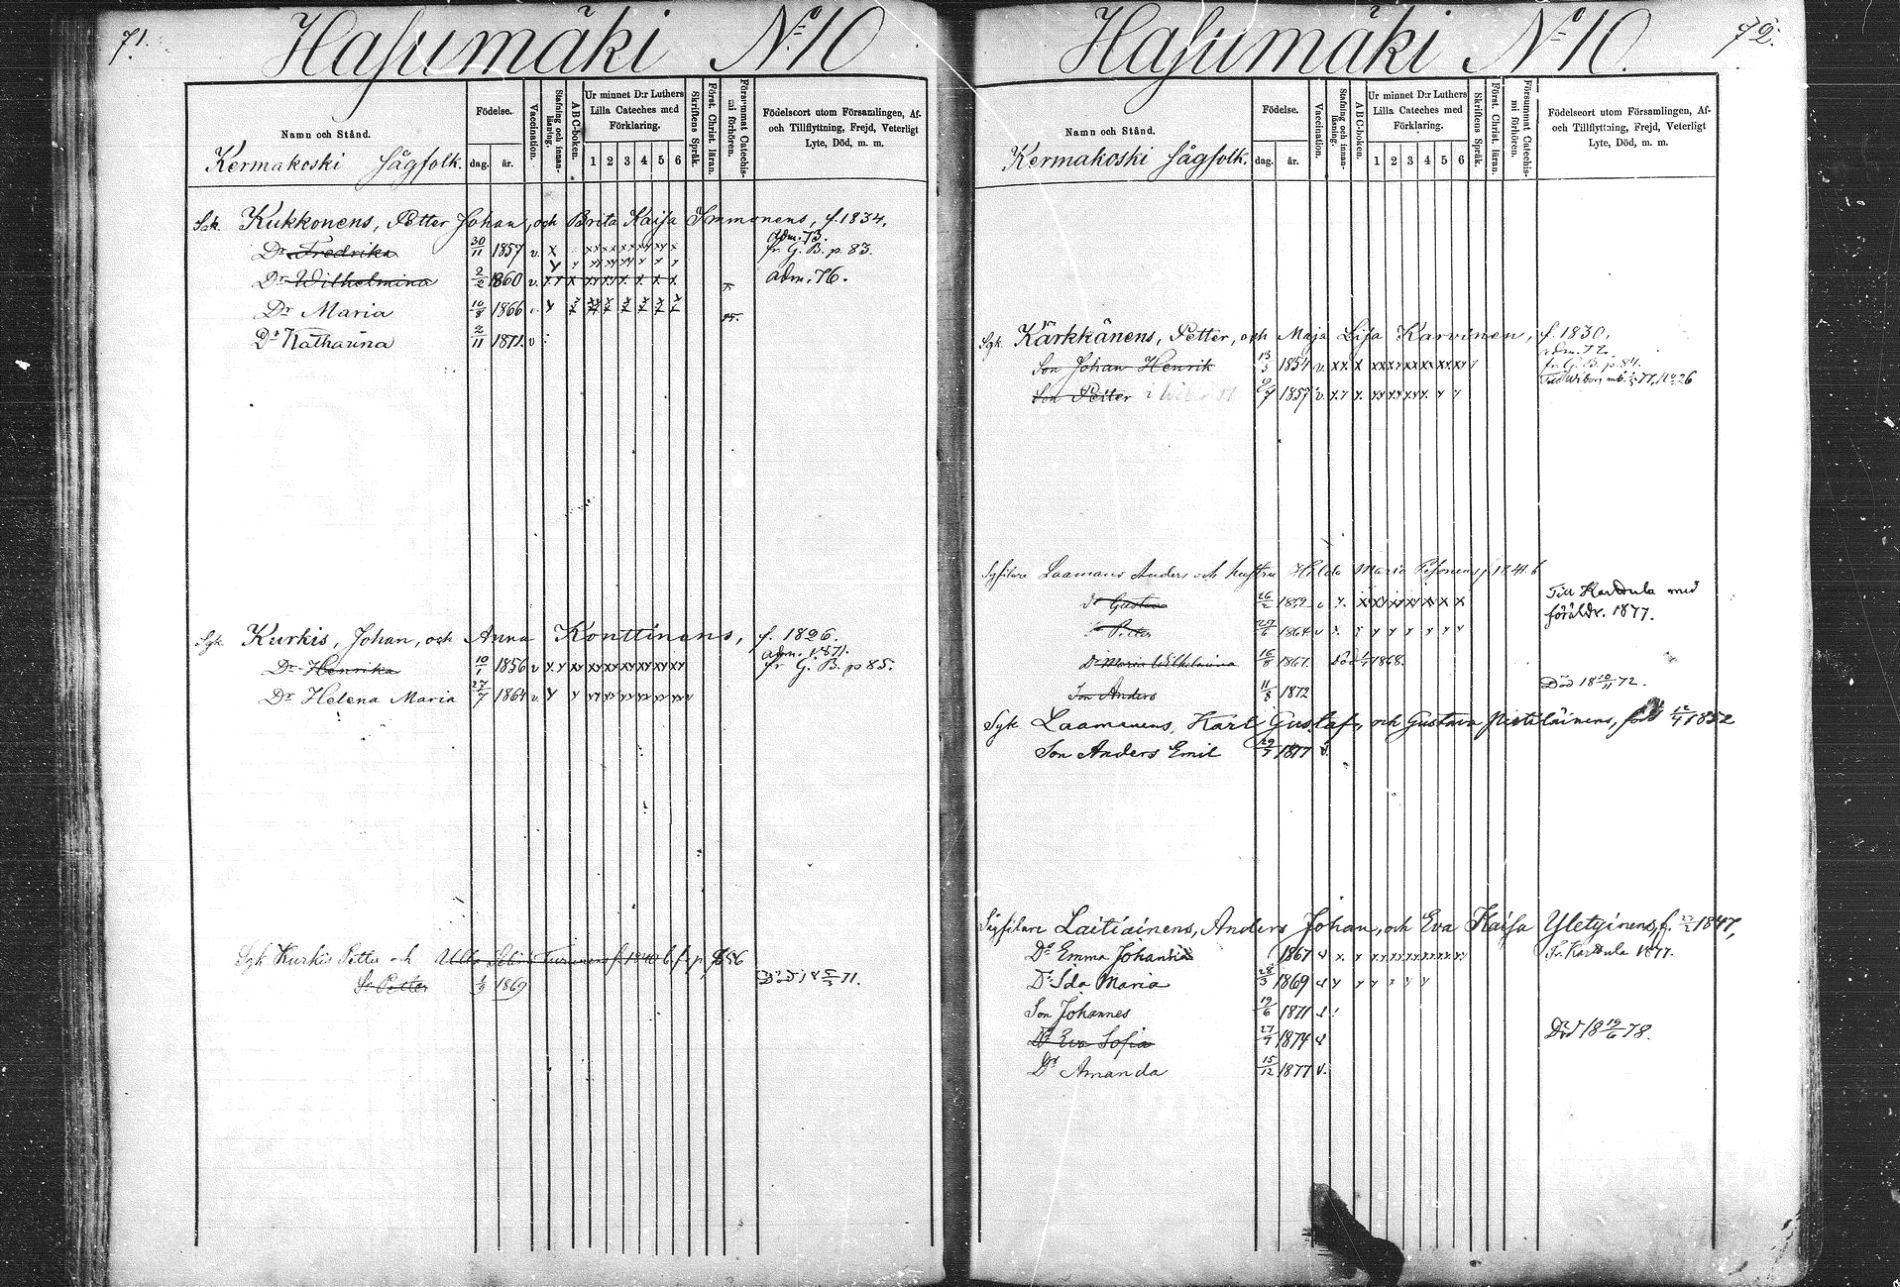 71.
Hasumäki № 10
Namn och Stånd.
Födelse.
dag.
år.
Vaccination.
Stafning och innanläsning.
ABC-boken.
Ur minnet D:r Luthers
Lilla Cateches med
Förklaring.
1 2 3 4 5 6
Skriftens Språk.
Först. Christ. läran.
Försummat Catechismi förhören.
Födelseort utom Församlingen, Af-
och Tillflyttning, Frejd, Veterligt
Lyte, Död, m. m.
Kermakoski Sågfolk.
Sgk. Kukkonens, Petter Johan, och Brita Kaisa Immonens, f. 1834.
Dr Fredrika 30/11 1857 v. adm. 73. fr. G. B. p. 83.
Dr Wilhelmina 2/2 1860 v. adm. 76.
Dr Maria 10/8 1866
Dr Katharina 2/11 1871. v
Sgk. Kurkis, Johan, och Anna Konttinens, f. 1826.
Dr Henrika 10/1 1856 v adm. 1871. fr G. B. p 85.
Dr Helena Maria 27/7 1864 v.
Sgk Kurkis Petter och Ulla Turunens f. 1840
Sr Petter 1/9 1869 Död 71.
72.
Hasumäki № 10.
Namn och Stånd.
Födelse.
dag.
år.
Vaccination.
Stafning och innanläsning.
ABC-boken.
Ur minnet D:r Luthers
Lilla Cateches med
Förklaring.
1 2 3 4 5 6
Skriftens Språk.
Först. Christ. läran.
Försummat Catechismi förhören.
Födelseort utom Församlingen, Af-
och Tillflyttning, Frejd, Veterligt
Lyte, Död, m. m.
Kermakoski Sågfolk.
Sgk. Kärkkänens, Petter, och Maja Lisa Karvinen, f. 1830.
Son Johan Henrik 13/3 1854 v. adm. 72. fr. G. B. p. 84.
Son Petter 1857 v. Till Wiborg
Sgfilare Laamans Anders och hustru Hilda Maria
Dr Gustava 26/2 1859 Till Karttula med
Petter 1864 v föräldr. 1877.
Dr Maria Wilhelmina 16/8 1867. Död 1868.
Son Anders 11/8 1872 Död 18 10/11 72.
Sgk Laamanens, Karl Gustaf, och Gustava född 12/4 1852
Son Anders Emil 29/7 1877 v.
Sågfilare Laitiainens, Anders Johan, och Eva Kaisa Yletyinens, f. 1847,
Dr Emma Johanna 1867 v Fr. Karttula 1877.
Dr Ida Maria 28/3 1869 v
Son Johannes 19/6 1871 v
Dr Eva Sofia 27/7 1874 v Död 18 19/6 78.
Dr Amanda 15/12 1877 v.